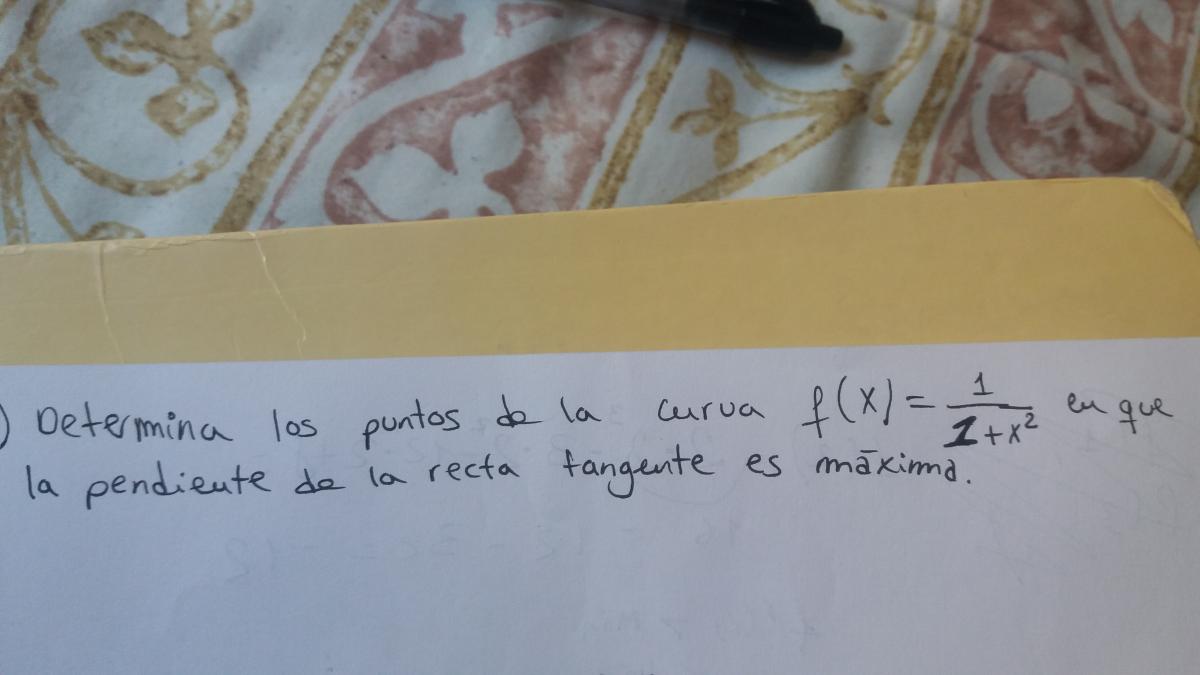 ) Determina los puntos de la curva f(x) = 1/(1+x²) en que
la pendiente de la recta tangente es máxima.